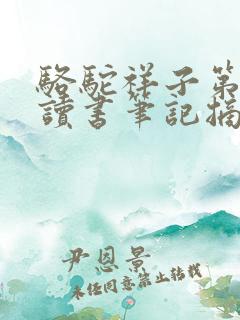 駱駝祥子第
讀書筆記摘
尹恩景
未經同意禁止轉載